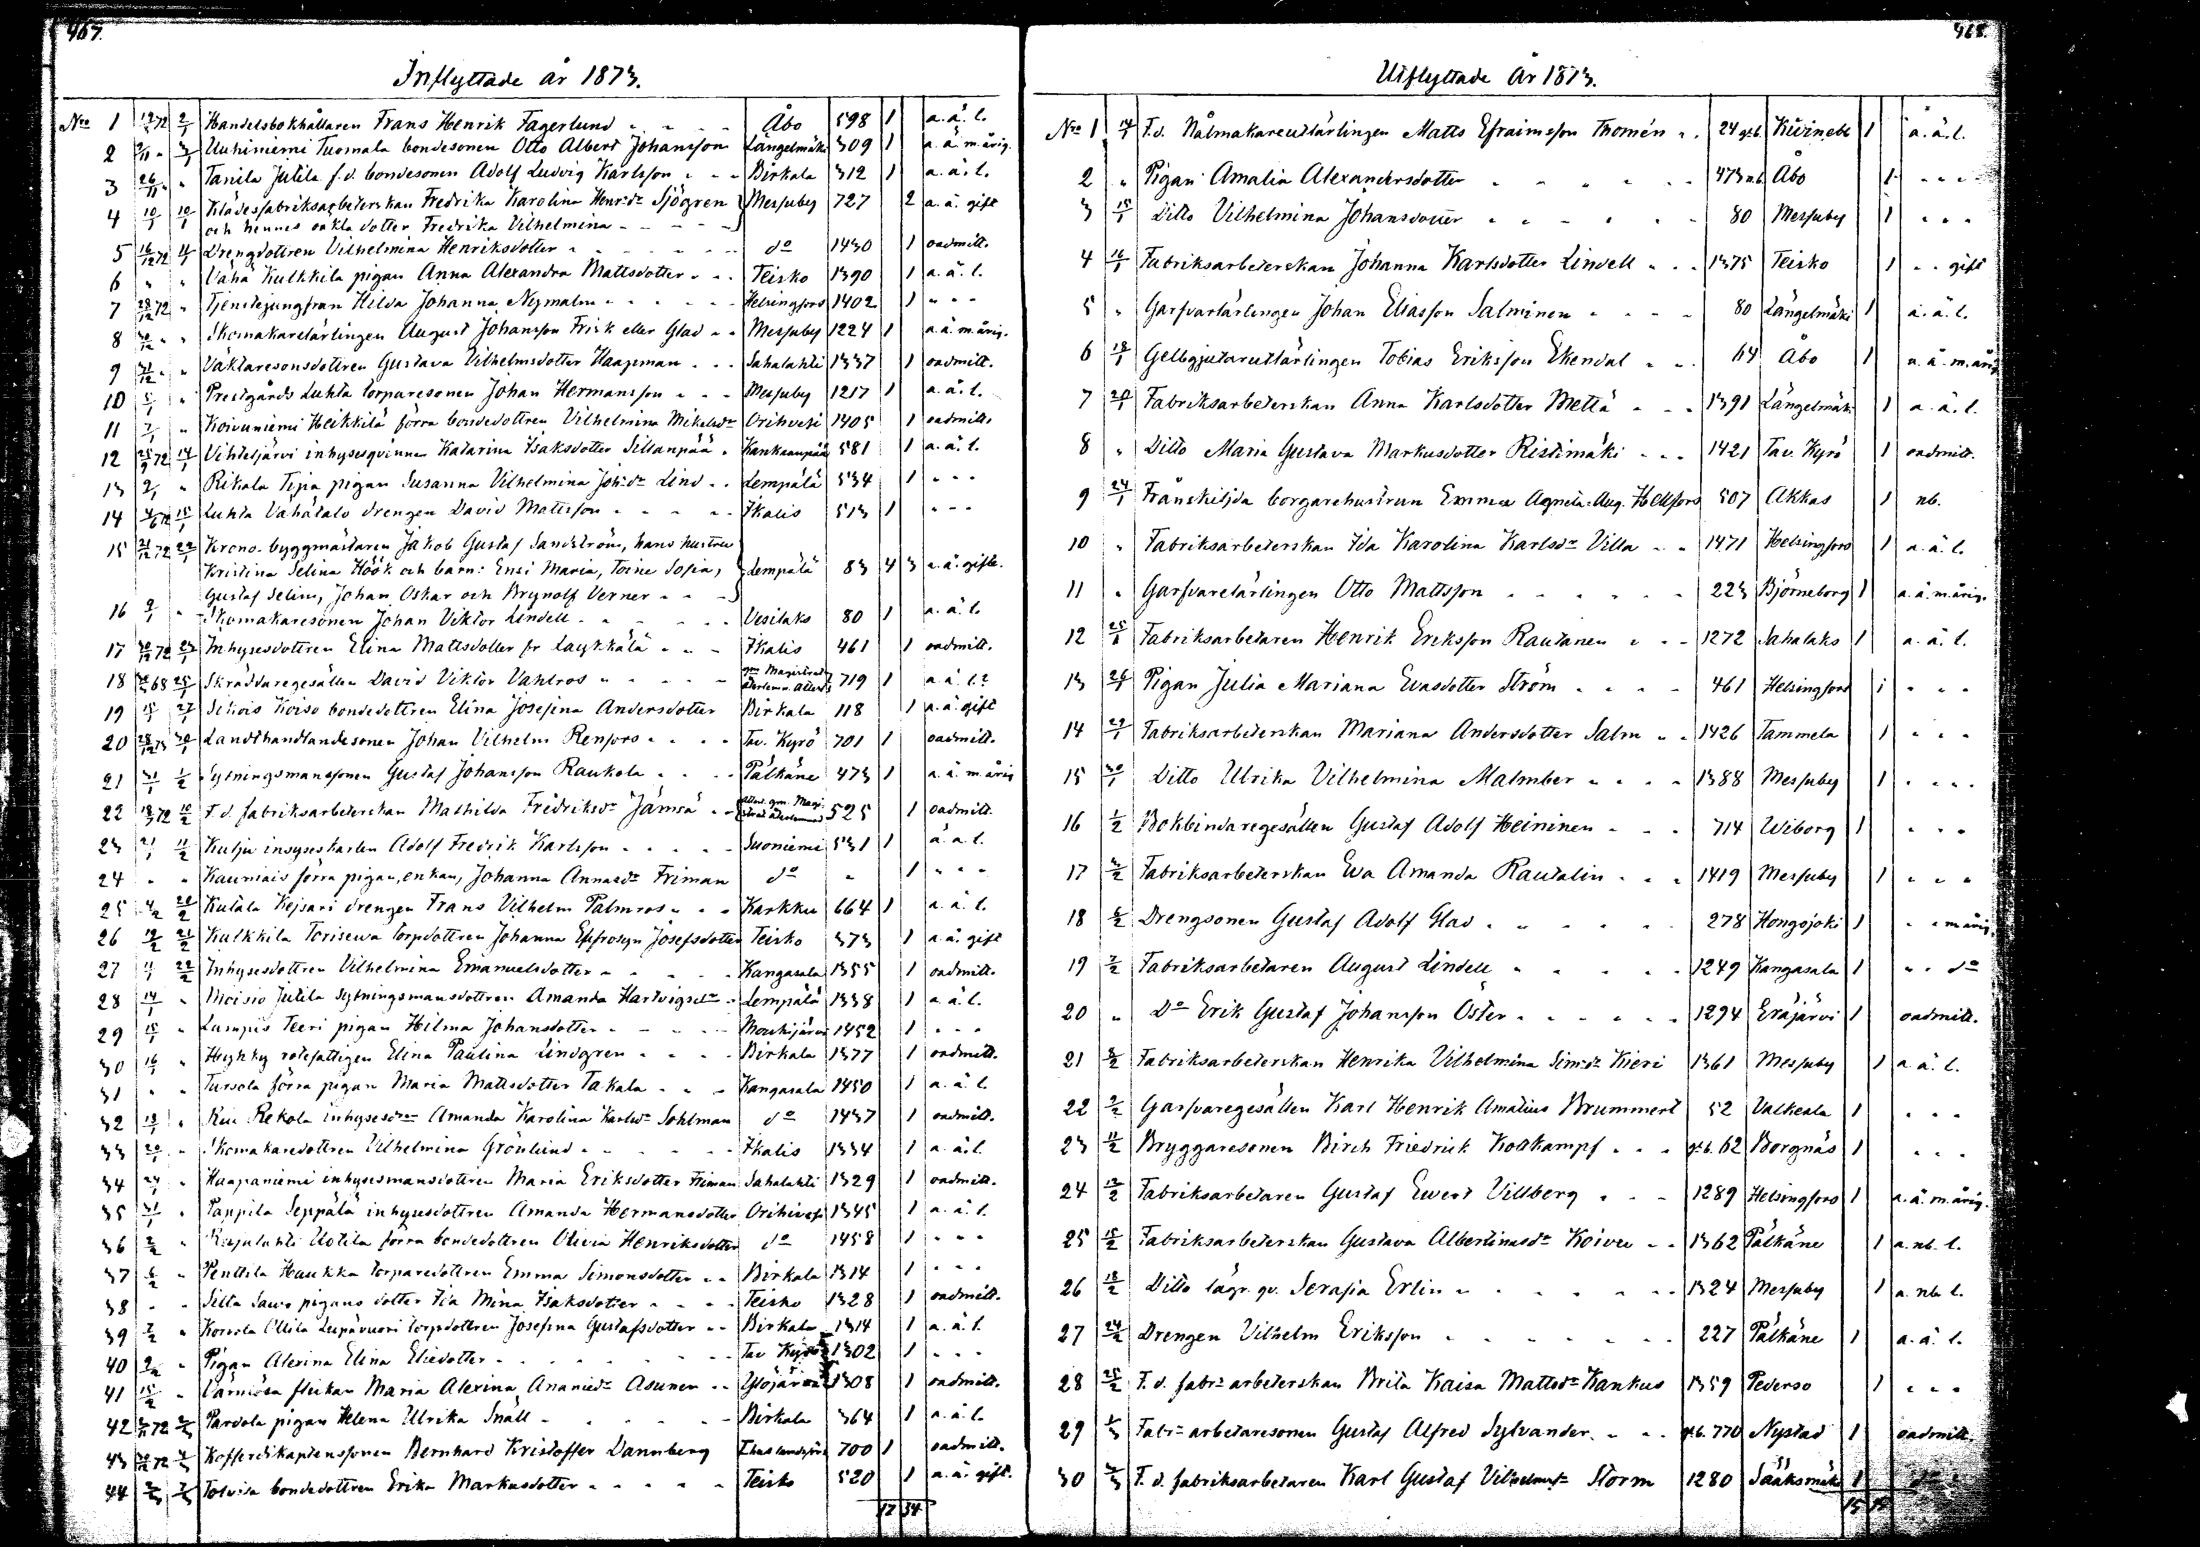 467.
Inflyttade år 1873.
No 1 19/12 72 2/1 Handelsbokhållaren Frans Henrik Fagerlund Åbo 598 1 a.ä.l.
2 3/1 Uuhiniemi Tuomala bondesonen Otto Albert Johansson Längelmäki 309 1 a.ä.m.ärig.
3 26/11 " Tanila Jutila f.d. bondesonen Adolf Ludvig Karlsson Birkala 312 1 a.ä.l.
4 10/1 10/1 Klädesfabriksarbeterskan Fredrika Karolina Henr:dr Sjögren Messuby 727 2 a.ä. gift
och hennes oäkta dotter Fredrika Vilhelmina
5 16/12 72 11/1 Drengdottren Vilhelmina Henriksdotter do 1430 1 oadmitt.
6 " " Vähä Kulkkila pigan Anna Alexandra Mattsdotter Teisko 1390 1 a.ä.l.
7 28/12 72 " Tjenstejungfrun Hilda Johanna Nymalm Helsingfors 1402 1 " " "
8 " " Skomakarelärlingen August Johansson Frisk eller Glad Messuby 1224 1 a.ä.m.ärig.
9 31/12 " " Vaktaresonsdottren Gustava Vilhelmsdotter Haapman Sahalahti 1337 1 oadmitt.
10 5/1 " Prestgårds Luhta torparesonen Johan Hermansson Messuby 1217 1 a.ä.l.
11 7/1 " Koivuniemi Heikkilä förra bondedottren Vilhelmina Mikelsdr Orihvesi 1405 1 oadmitt.
12 25/9 72 14/1 Vihteljärvi inhysesqvinnan Katarina Isaksdotter Siltanpää Kankaanpää 581 1 a.ä.l.
13 2/1 " Rikala Tipa pigan Susanna Vilhelmina Joh:dr Lind Lempälä 534 1 " " "
14 15/1 Luhta Vähätalo drengen David Mattsson Ikalis 513 1 " " "
15 31/12 72 22/1 Krono-byggmästaren Jakob Gustaf Sandström, hans hustru
Kristina Selina Höök och barn: Ensi Maria, Toine Sofia, Lempälä 83 4 3 a.ä. gifte.
Gustaf Selim, Johan Oskar och Brynolf Verner
16 9/1 " Skomakaresonen Johan Viktor Lindell Vesilaks 80 1 a.ä.l.
17 30/12 72 23/1 Inhysesdottren Elina Mattsdotter fr Laykkälä Ikalis 461 1 oadmitt.
18 68 25/1 Skräddaregesällen David Viktor Vahlros gm Magistrad. 719 1 a.ä.l.?
19 15/1 27/1 Sikois Koiso bondedottren Elina Josefina Andersdotter Birkala 118 1 a.ä. gift
20 28/12 73 30/1 Landthandlandesonen Johan Vilhelm Renfors Tav. Kyrö 701 1 oadmitt.
21 31/1 1/2 Sytningsmanssonen Gustaf Johansson Raukola Pälkäne 473 1 a.ä.m.ärig
22 72 10/2 F.d. fabriksarbeterskan Mathilda Fredriksdr Jämsä 525 1 oadmitt.
23 21/1 11/2 Kulju insyseskarlen Adolf Fredrik Karlsson Suoniemi 531 1 ä.a.l.
24 " " Kauniais förra pigan, enkan, Johanna Annasdr Friman do " 1 " " "
25 4/2 20/2 Kutala Kejsari drengen Frans Vilhelm Palmros Karkku 664 1 a.ä.l.
26 19/2 21/2 Kulkkila Torisewa torpdottren Johanna Eufrosyn Josefsdotter Teisko 373 1 a.ä. gift
27 11/1 22/2 Inhysesdottren Vilhelmina Emanuelsdotter Kangasala 1355 1 oadmitt.
28 14/1 " Moisio Jutila sytningsmansdottren Amanda Hartvigsdr Lempälä 1338 1 a.ä.l.
29 15/1 " Lumpis Teeri pigan Hilma Johansdotter Mouhijärvi 1452 1 " " "
30 16/1 " Hyhky rotefattigen Elina Paulina Lindgren Birkala 1377 1 oadmitt.
31 " " Tursola förra pigan Maria Mattsdotter Takala Kangasala 1450 1 a.ä.l.
32 18/1 " Rekola inhysesdr Amanda Karolina Karlsdr Sohlman do 1437 1 oadmitt.
33 20/1 " Skomakaredottren Vilhelmina Grönlund Ikalis 1334 1 a.ä.l.
34 24/1 " Haapaniemi inhysesmansdottren Maria Eriksdotter Friman Sahalahti 1329 1 oadmitt.
35 31/1 " Pappila Seppälä inhysesdottren Amanda Hermansdotter Orihivesi 1345 1 a.ä.l.
36 3/2 " Rajalahti Uotila förra bondedottren Olivia Henriksdotter do 1458 1 " " "
37 6/2 " Penttilä Haukka torparedottren Emma Simonsdotter Birkala 1314 1 " " "
38 " " Silta Sawo pigans dotter Ida Mina Isaksdotter Teisko 1328 1 oadmitt.
39 7/2 " Korvola Ollila Lupävuori torpdottren Josefina Gustafsdotter Birkala 1314 1 a.ä.l.
40 " Pigan Alexina Elina Eliedotter Tav Kyrö 1302 1 " " "
41 15/2 " Värmälä flickan Maria Alexina Ananiedr Asunen Ylöjärvi 1308 1 oadmitt.
42 72 Pardola pigan Helena Ulrika Snäll Birkala 364 1 a.ä.l.
43 72 Kofferdikaptenssonen Bernhard Kristoffer Dannberg 700 1 oadmitt.
44 Tolvila bondedottren Erika Markusdotter Teisko 520 1 a.ä. gift.
17 34
468.
Utflyttade År 1873.
No 1 14/1 F.d. Nålmakareutlärlingen Matts Efraimsson Thomén 24 gb. Kivineb 1 a.ä.l.
2 " Pigan Amalia Alexandersdotter 473 nb. Åbo 1 " " "
3 15/1 Ditto Vilhelmina Johansdotter 80 Messuby 1 " " "
4 16/1 Fabriksarbeterskan Johanna Karlsdotter Lindell 1375 Teisko 1 " " gift
5 " Garfvarlärlingen Johan Eliasson Salminen 80 Längelmäki 1 a.ä.l.
6 18/1 Gelbgjutarutlärlingen Tobias Eriksson Ekendal 114 Åbo 1 a.ä.m.ärig
7 20/1 Fabriksarbeterskan Anna Karlsdotter Mettä 1391 Längelmäki 1 a.ä.l.
8 " Ditto Maria Gustava Markusdotter Ristimäki 1421 Tav. Kyrö 1 oadmitt.
9 24/1 Frånskiljda borgarehustrun Emma Agneta Aug. Hellfors 507 Akkas 1 nb.
10 " Fabriksarbeterskan Ida Karolina Karlsdr Villa 1471 Helsingfors 1 a.ä.l.
11 " Garfvarelärlingen Otto Mattsson 223 Björneborg 1 a.ä.m.ärig.
12 25/1 Fabriksarbetaren Henrik Eriksson Rautanen 1272 Sahalaks 1 a.ä.l.
13 28/1 Pigan Julia Mariana Evasdotter Ström 461 Helsingfors 1 " " "
14 29/1 Fabriksarbeterskan Mariana Andersdotter Salm 1426 Tammela 1 " " "
15 30/1 Ditto Ulrika Vilhelmina Malmber 1388 Messuby 1 " " "
16 1/2 Bokbindaregesällen Gustaf Adolf Heininen 714 Wiborg 1 " " "
17 3/2 Fabriksarbeterskan Ewa Amanda Rautalin 1419 Messuby 1 " " "
18 6/2 Drengsonen Gustaf Adolf Glad 278 Hongojoki 1 " " m.ärig.
19 7/2 Fabriksarbetaren August Lindell 1249 Kangasala 1 " " do
20 " Do Erik Gustaf Johansson Öster 1294 Eräjärvi 1 oadmitt.
21 8/2 Fabriksarbeterskan Henrika Vilhelmina Sim:dr Kieri 1361 Messuby 1 a.ä.l.
22 9/2 Garfvaregesällen Karl Henrik Amatius Brummert 52 Valkeala 1 " " "
23 11/2 Bryggaresonen Birch Friedrich Kollkampf gb. 62 Borgnäs 1 " " "
24 12/2 Fabriksarbetaren Gustaf Ewert Villberg 1289 Helsingfors 1 a.ä.m.ärig.
25 15/2 Fabriksarbeterskan Gustava Albertinasdr Koivu 1362 Pälkäne 1 a.nb.l.
26 18/2 Ditto lägr. qv. Serafia Erlin 1324 Messuby 1 a.nb.l.
27 24/2 Drengen Vilhelm Eriksson 227 Pälkäne 1 a.ä.l.
28 25/2 F.d. fabr: arbeterskan Brita Kaisa Mattsdr Kankus 1359 Pederso 1 " " "
29 Fabr: arbetaresonen Gustaf Alfred Sylvander gb. 770 Nystad 1 oadmitt.
30 F.d. fabriksarbetaren Karl Gustaf Vilhelmsson Storm 1280 Sääksmäki 1
15 15